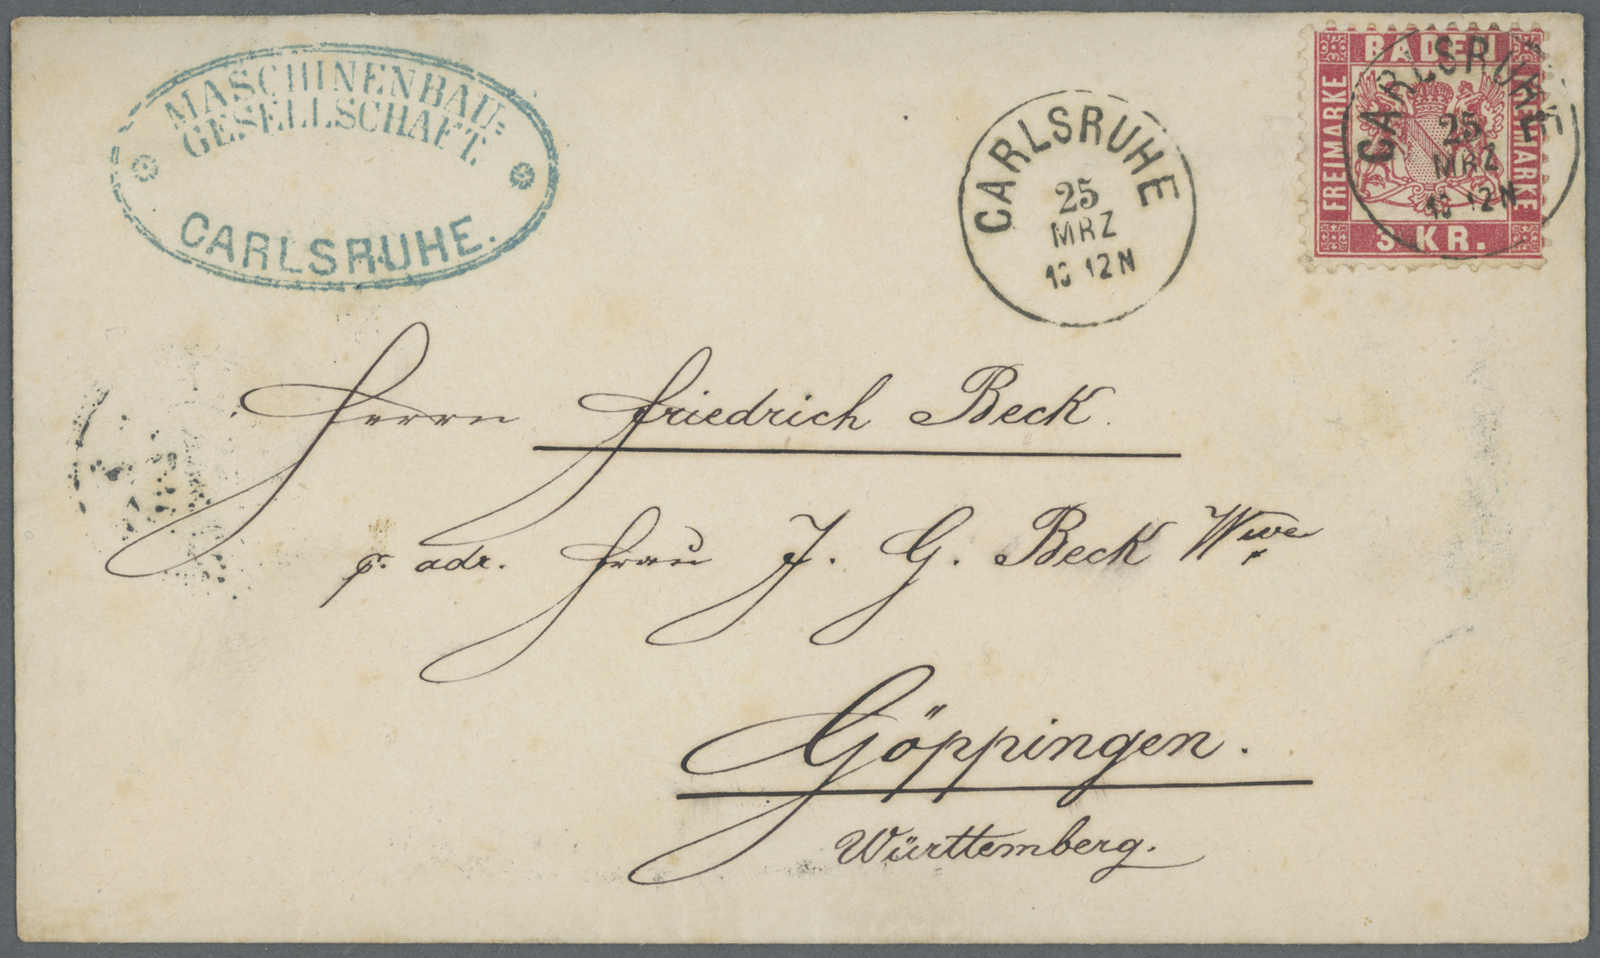 MASCHINENBAU=
GESELLSCHAFT.
CARLSRUHE.
CARLSRUHE
25
MRZ
12N
BADEN
FREIMARKE
FREIMARKE
3 KR.
CARLSRUHE
25
MRZ
12N
Herrn Friedrich Beck.
p. adr. Frau J. G. Beck Wwe
Göppingen.
Württemberg.